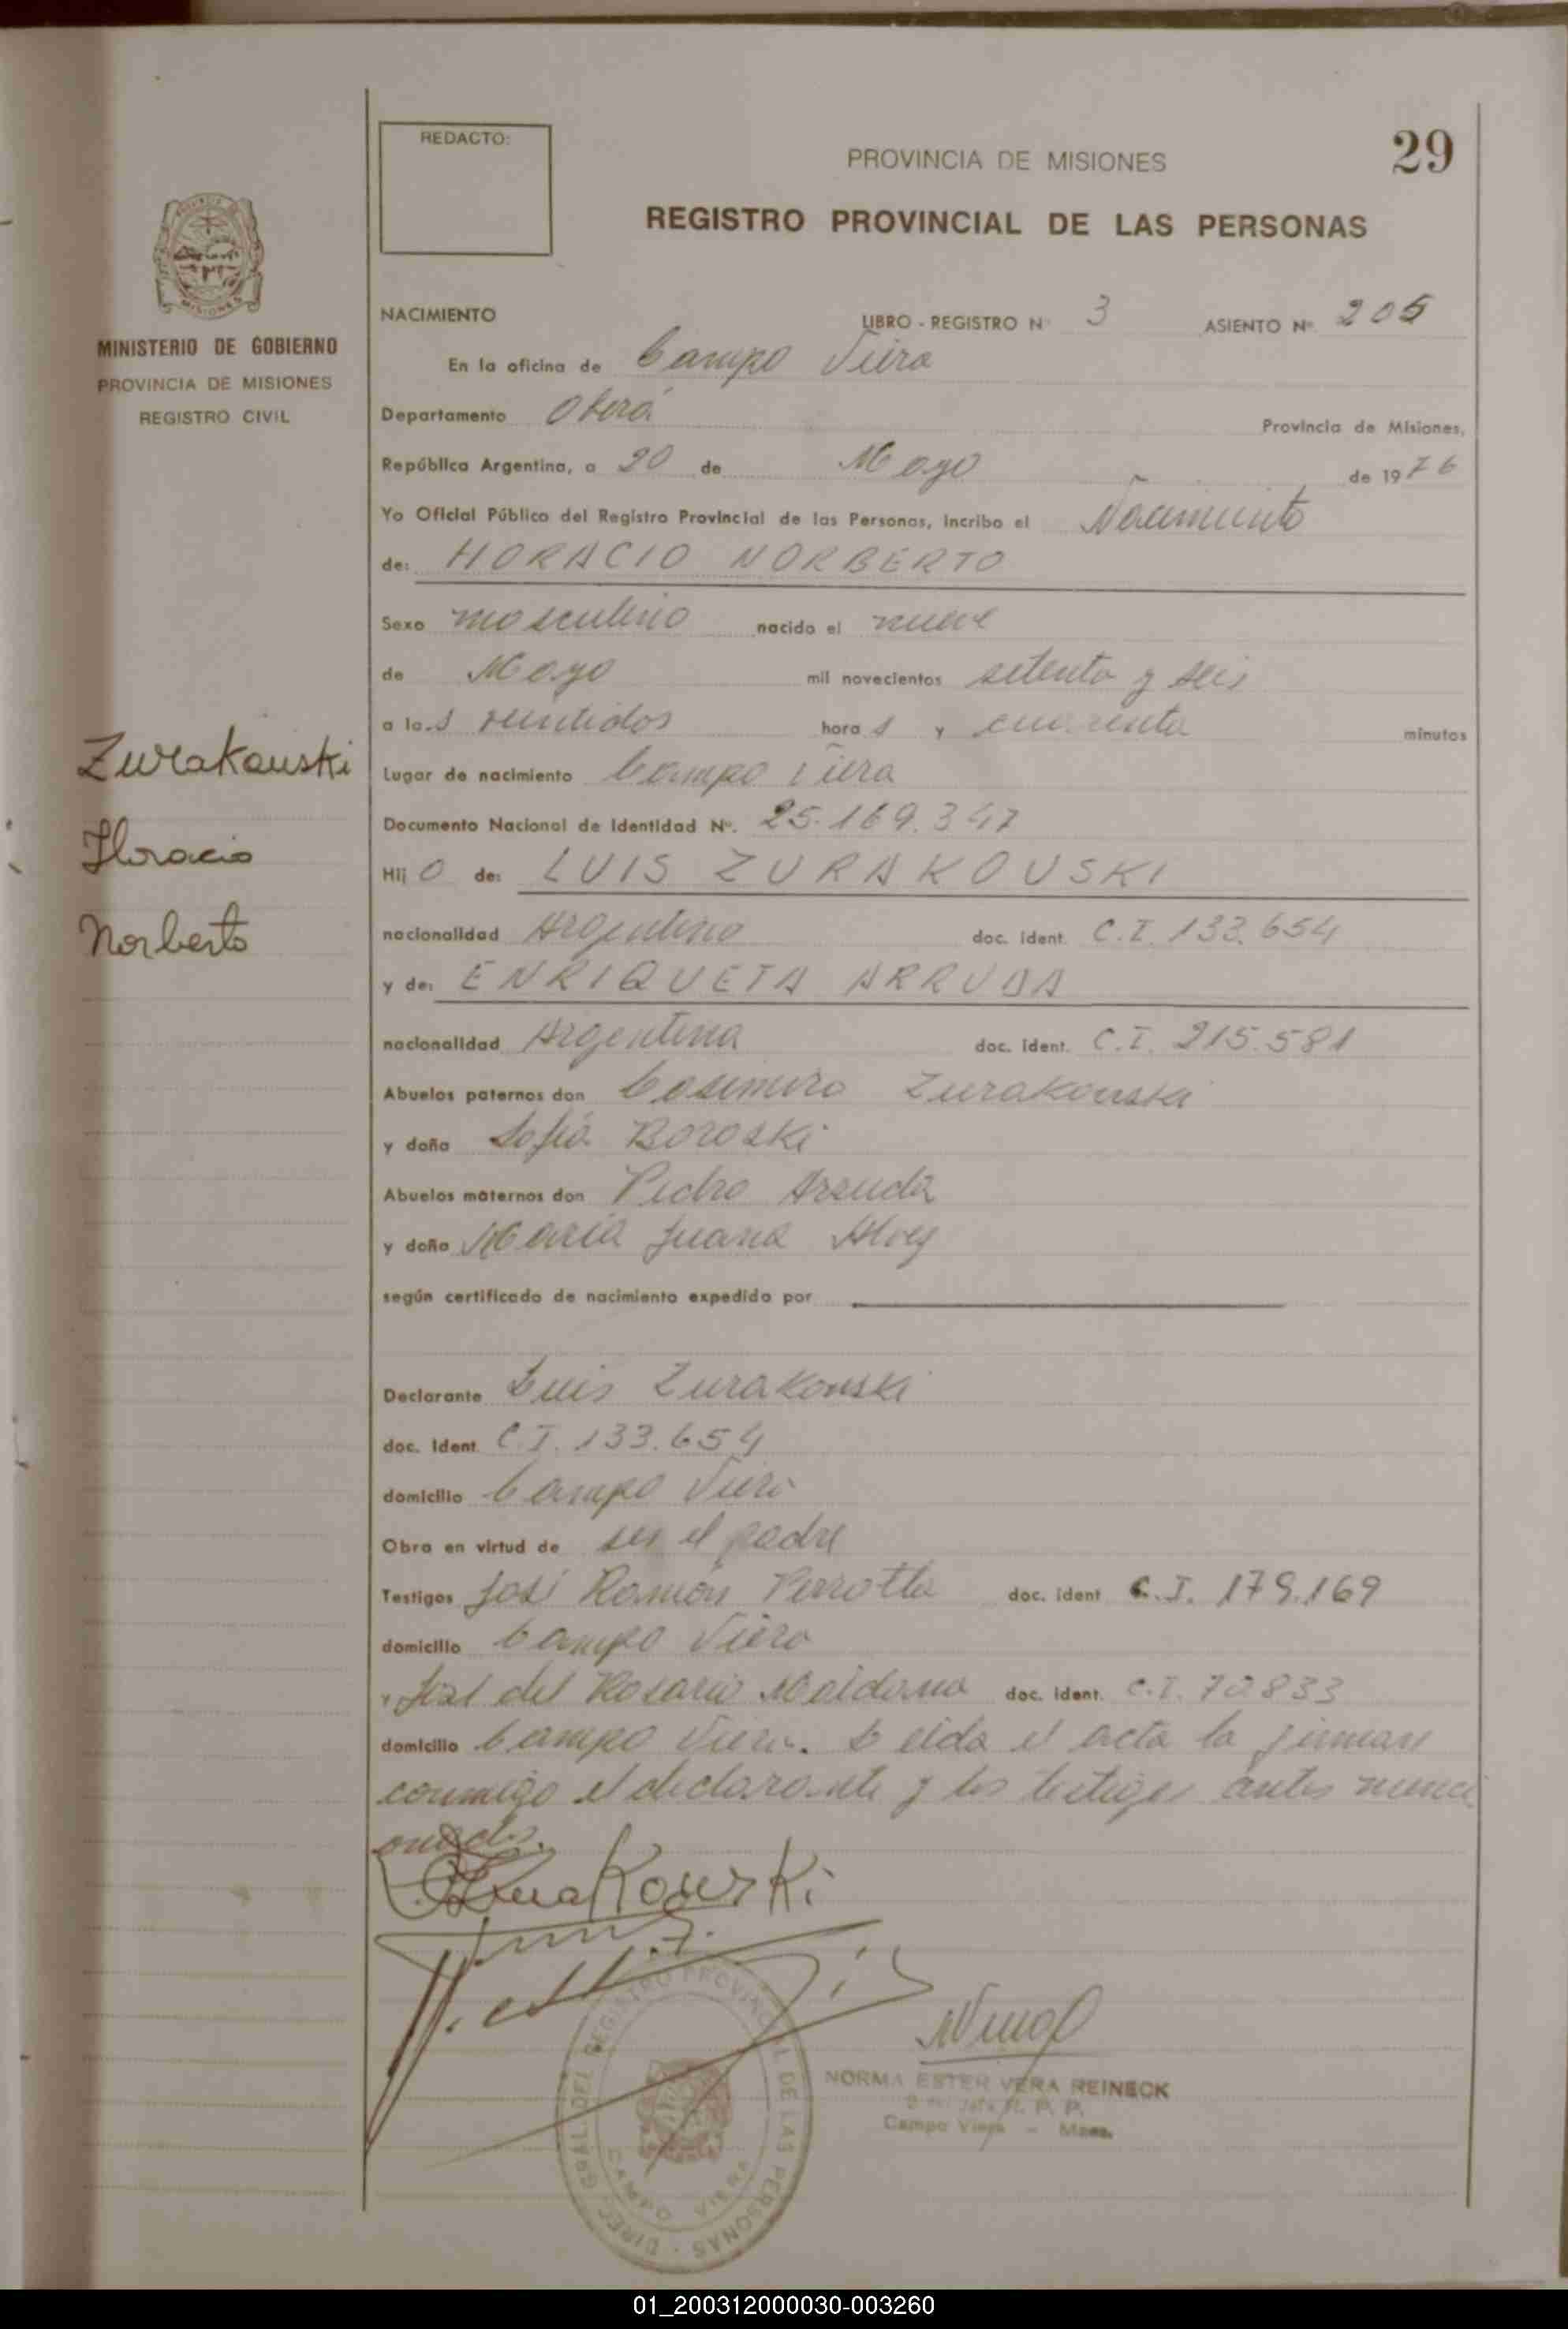 REDACTO:
PROVINCIA DE MISIONES
29
REGISTRO PROVINCIAL DE LAS PERSONAS
MISIONES
MINISTERIO DE GOBIERNO
PROVINCIA DE MISIONES
REGISTRO CIVIL
NACIMIENTO
LIBRO - REGISTRO N° 3 ASIENTO N° 205
En la oficina de Campo Viera
Departamento Oberá Provincia de Misiones,
República Argentina, a 20 de Mayo de 1976
Yo Oficial Público del Registro Provincial de las Personas, incribo el Nacimiento
de: HORACIO NORBERTO
Sexo masculino nacido el nueve
de Mayo mil novecientos setenta y seis
a las veintidos horas y cuarenta minutos
Zurakouski
Horacio
Norberto
Lugar de nacimiento Campo Viera
Documento Nacional de Identidad N°. 25.169.347
Hijo de: LUIS ZURAKOUSKI
nacionalidad Argentino doc. ident. C.I. 133.654
y de: ENRIQUETA ARRUDA
nacionalidad Argentina doc. ident. C.I. 215.581
Abuelos paternos don Casimiro Zurakouski
y doña Sofia Boroski
Abuelos maternos don Pedro Arruda
y doña Maria Juana Alves
según certificado de nacimiento expedido por
Declarante Luis Zurakouski
doc. Ident. C.I. 133.654
domicilio Campo Viera
Obra en virtud de ser el padre
Testigos José Ramón Perrotta doc. ident C.I. 179.169
domicilio Campo Viera
y José del Rosario Maidana doc. ident. C.I. 70.833
domicilio Campo Viera. Leida el acta la firman
conmigo el declarante y los testigos antes menci
onados.
Zurakouski
NORMA ESTER VERA REINECK
R. P. P.
Campo Viera - Mnes.
DIREC. GRAL. DEL REGISTRO PROVINCIAL DE LAS PERSONAS
CAMPO VIERA
01_200312000030-003260